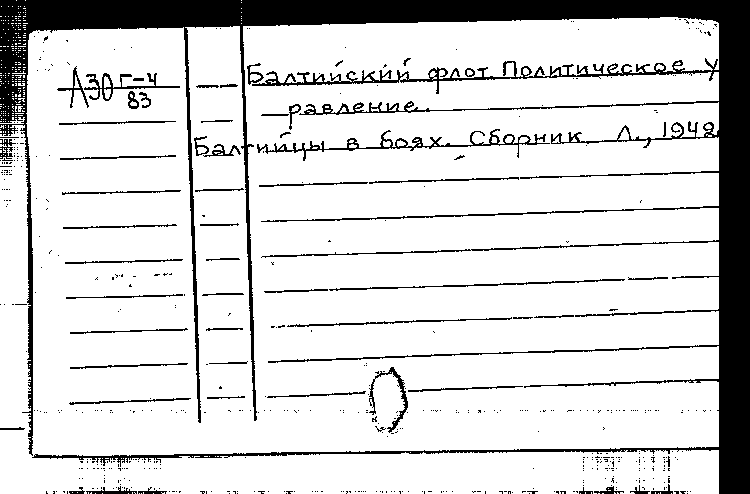 Л30 Г-4/83
Балтийский флот. Политическое у
равление.
Балтийцы в боях. Сборник Л., 1942